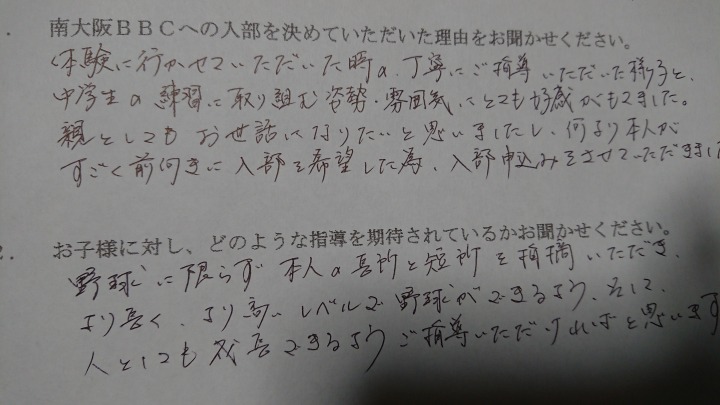 南大阪ＢＢＣへの入部を決めていただいた理由をお聞かせください。
体験に行かせていただいた時の、丁寧にご指導いただいた様子と、
中学生の練習に取り組む姿勢・雰囲気にとても好感がもてました。
親としてもお世話になりたいと思いましたし、何より本人が
すごく前向きに入部を希望した為、入部申込みをさせていただきました
お子様に対し、どのような指導を期待されているかお聞かせください。
野球に限らず本人の長所と短所を指摘いただき、
より長く、より高いレベルで野球ができるよう、そして、
人としても成長できるようご指導いただければと思います